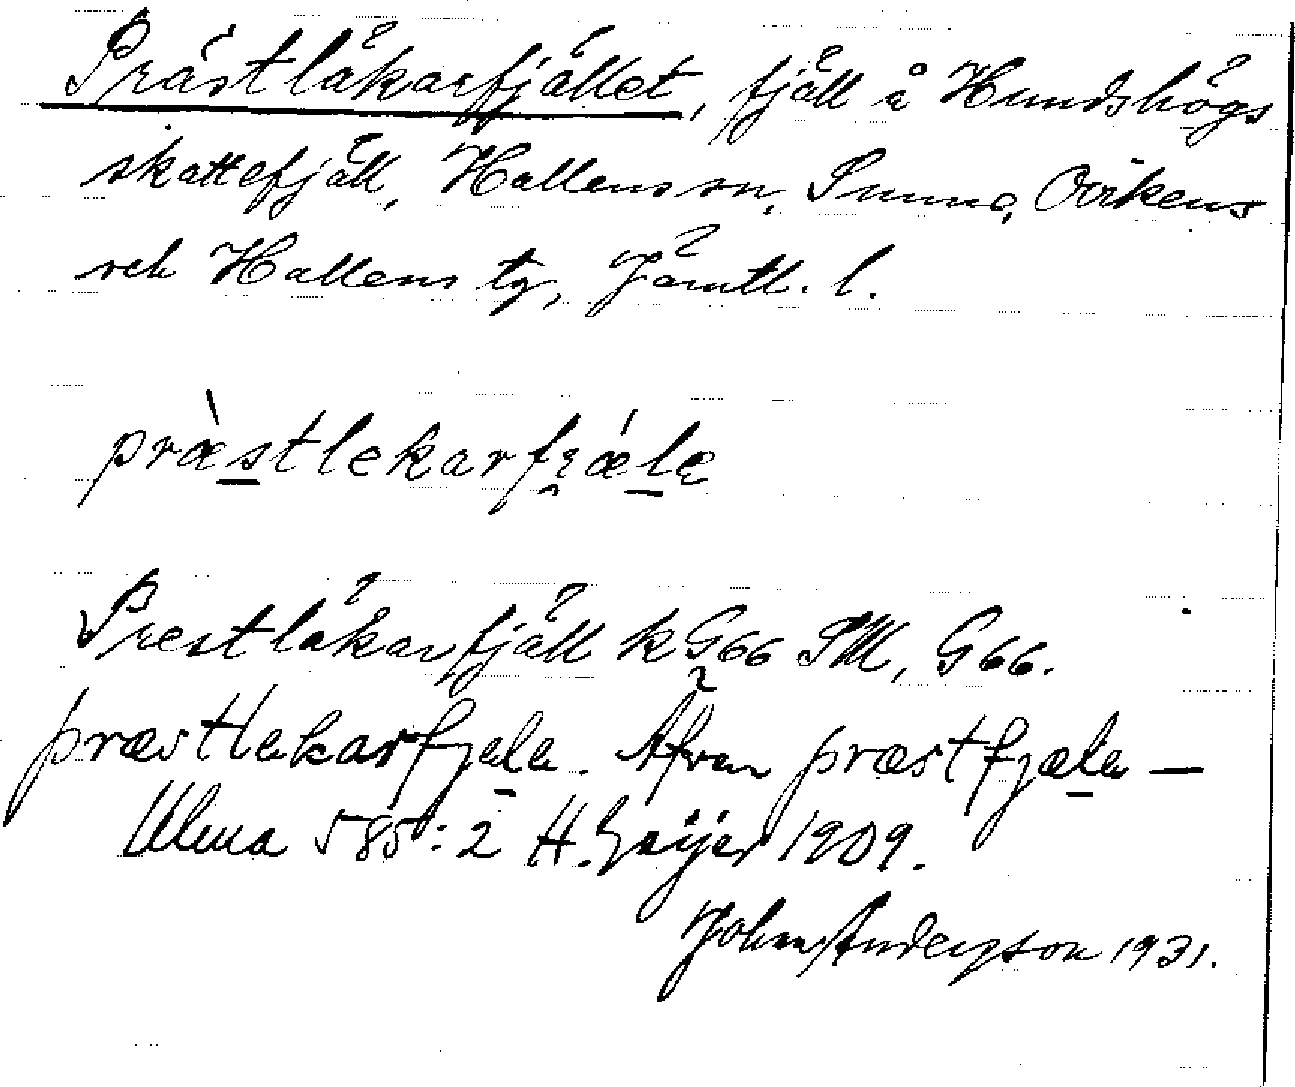 Prästläkarfjället, fjäll å Hundshögs
skattefjäll, Hallens sn, Sunne, Ovikens
och Hallens tg, Jämtl. l.
præstlekarfjælɐ
Prestläkarfjäll k G66 SM, G66.
præstlekarfjælɐ. Äfven præstfjælɐ —
Ulma 585:2 H. Geijer 1909.
Johan Anderson 1931.